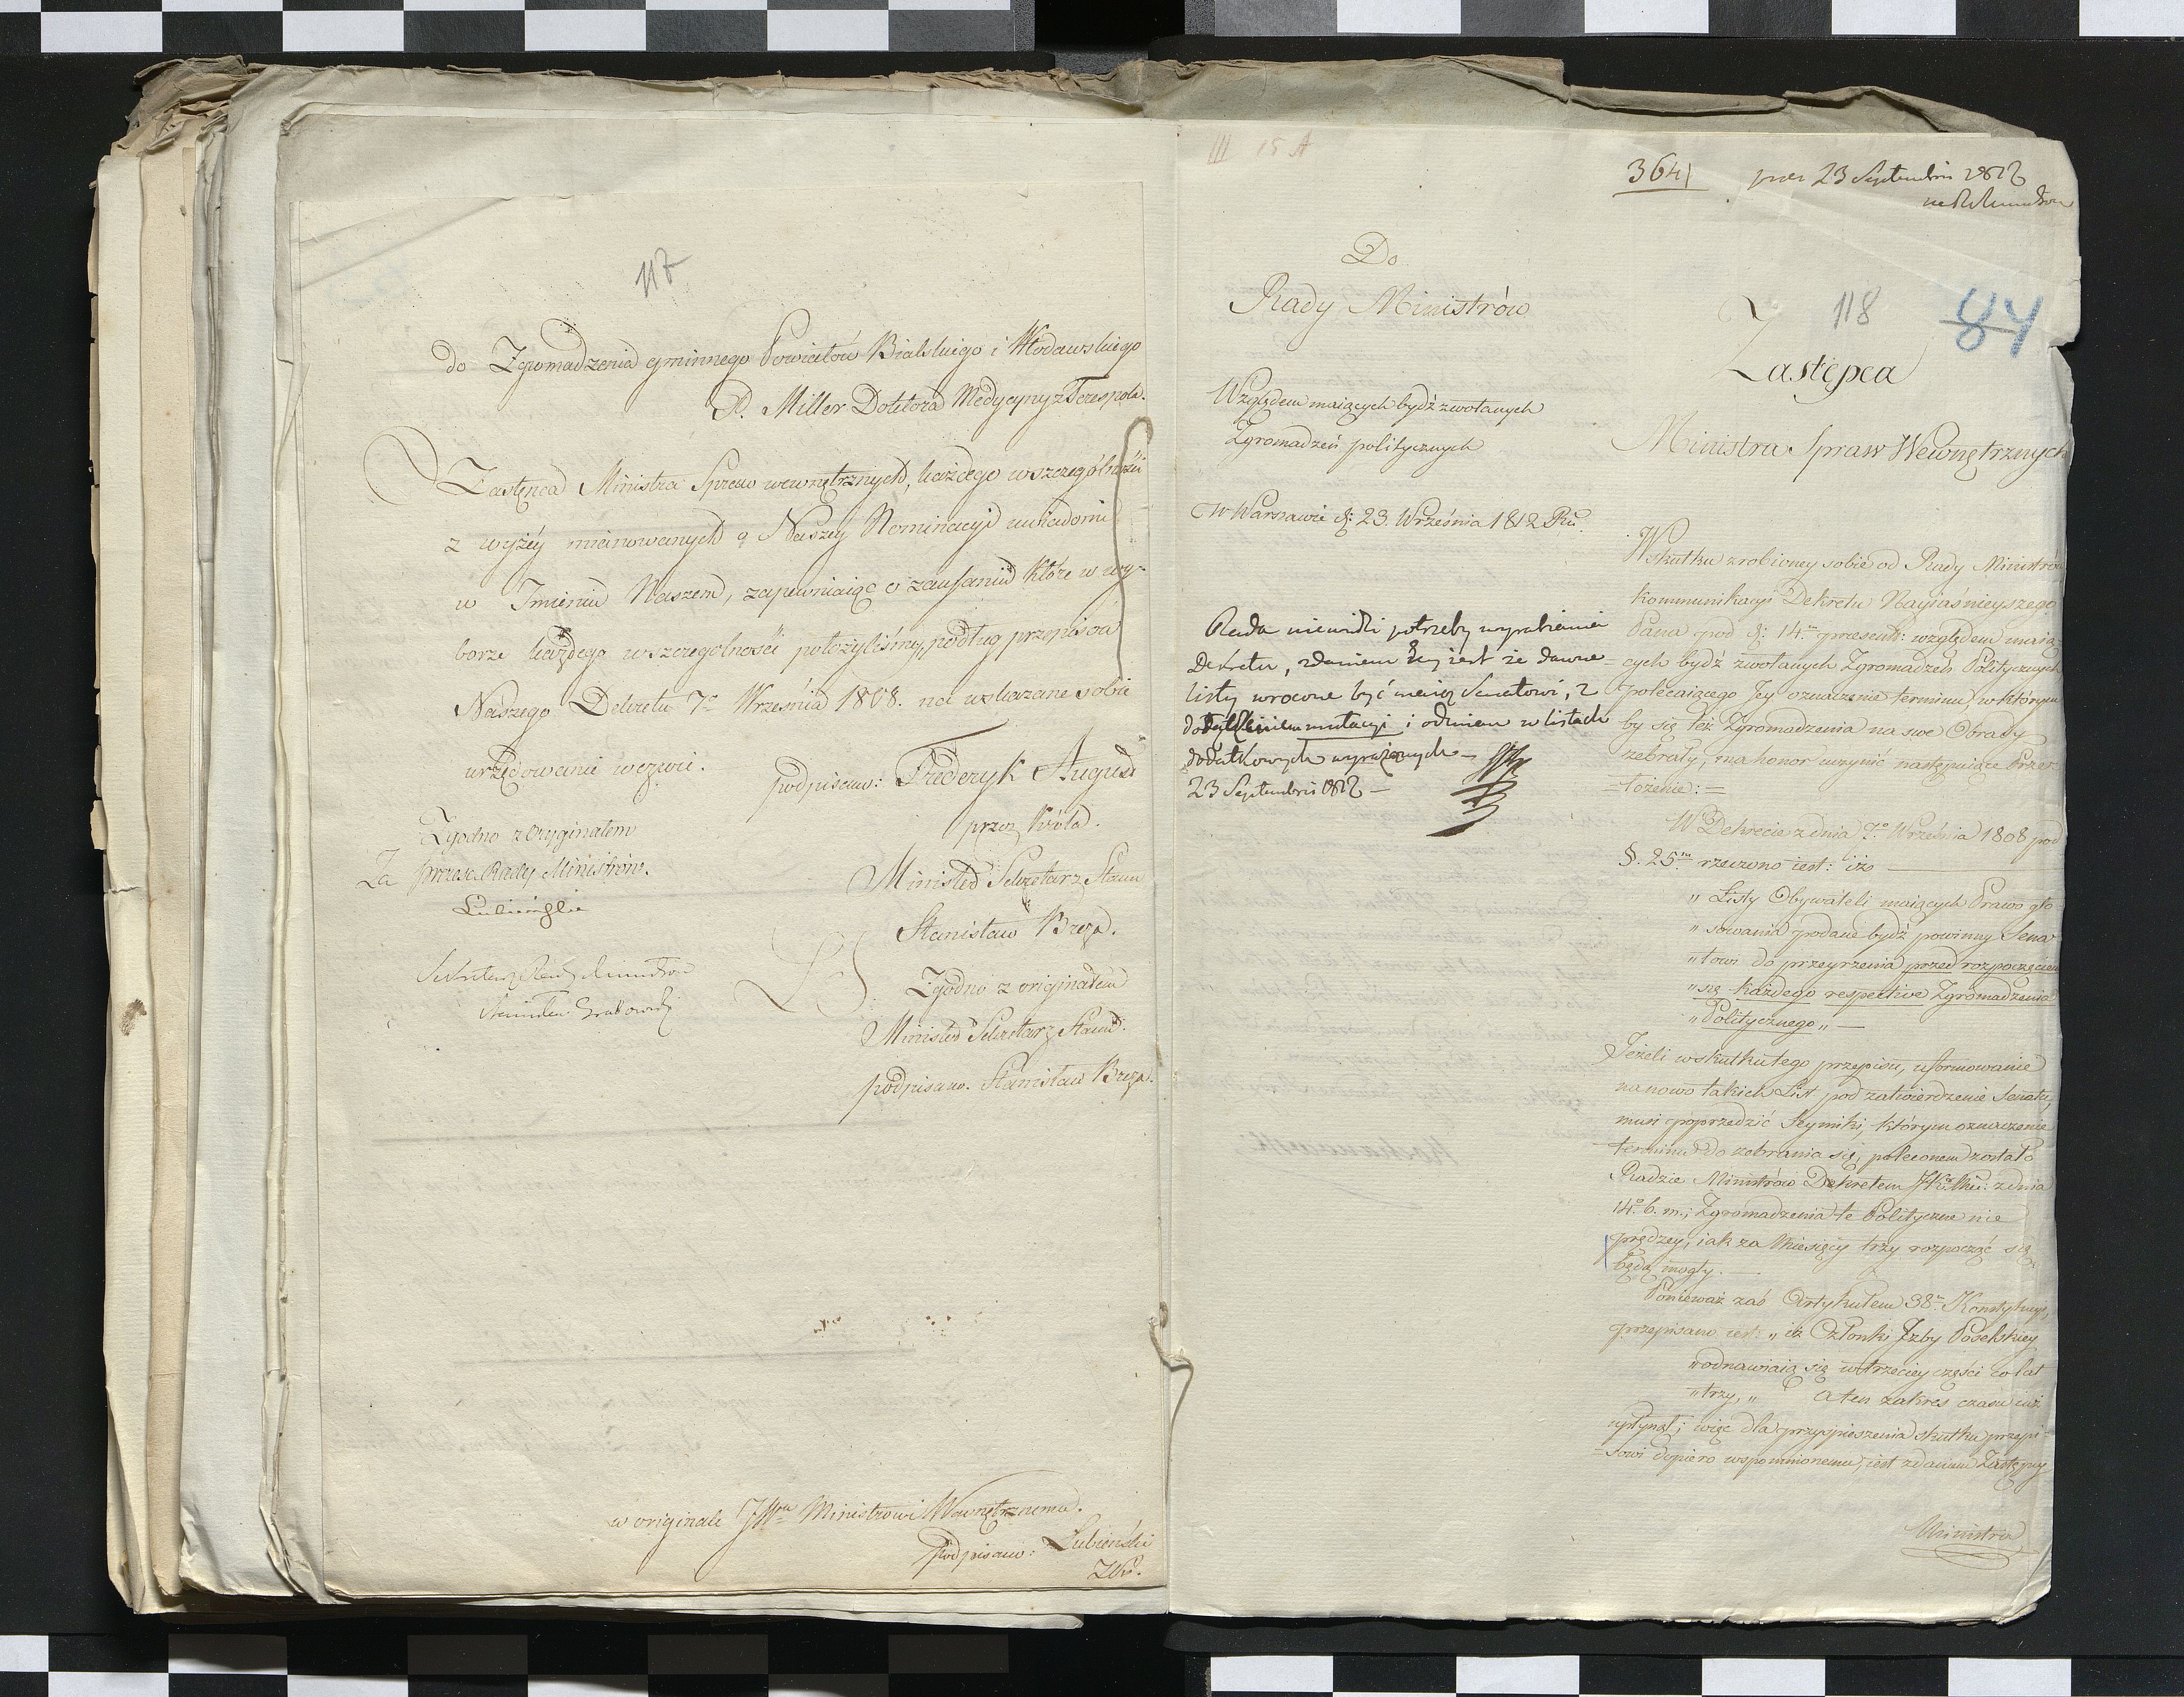 117
do Zgromadzenia gminnego Powiatów Bialskiego i Włodawskiego
P. Miller Doktora Medycyny z Terespola.
Zastępca Ministra Spraw wewnętrznych, każdego wszczególności
z wyżéy mianowanych o Naszey Nominacyi uwiadomi
w Imieniu Naszem, zapewniaiąc o zaufaniu które w wy-
borze każdego wszczegolności położyliśmy, podług przepisów
Naszego Dekretu 7º Września 1808. na wskazane sobie
urzędowanie wezwie.
podpisano: Fryderyk August
przez Króla.
Minister Sekretarz Stanu
Stanisław Breza.
Zgodno z originałem
Minister Sekretarz Stanu.
podpisano. Stanisław Breza.
Zgodno z Oryginałem
Za Prezesa Rady Ministrów.
Łubieński
Sekretarz Rady Ministrow
Stanisław Grabowski
w originale JW Ministrowi Wewnętrznemu.
podpisano: Łubieński
ZPr.
III 15 A
3641 23 Septembris 1812
118
84
Do
Rady Ministrów
Względem maiących bydź zwołanych
Zgromadzeń politycznych
W Warszawie d: 23. Września 1812 Ru.
Rada niewidzi potrzeby wyrabiania
Dekretu, zdaniem Jey iest że dawne
listy wrócone być maią Senatowi, z
mutacyi i odmian w listach
dodatkowych wyrażonych —
23 Septembris 1812 —
Zastępca
Ministra Spraw Wewnętrznych
W skutku zrobioney sobie od Rady Ministrów
kommunikacyi Dekretu Nayiaśnieyszego
Pana pod d: 14. praesent: względem maią-
cych bydź zwołanych Zgromadzeń Politycznych
polecaiącego Jey oznaczenie terminu, w którym
by się też Zgromadzenia na swe Obrady
zebrały, ma honor uczynić następuiące Przed-
=łożenie: =
W Dekrecie z dnia 7º Września 1808 pod
§. 25m rzeczono iest: iż
„ Listy Obywateli maiących Prawo gło-
„ sowania podane bydź powinny Sena-
„ towi do przeyrzenia przed rozpoczęciem
„ się każdego respective Zgromadzenia
„ Politycznego „ —
Jeżeli wskutku tego przepisu, uformowanie
nanowo takich List pod zatwierdzenie Senatu,
musi poprzedzić Seymiki, którym oznaczenie
terminu do zebrania się, poleconem zostało
Radzie Ministrów Dekretem JKr. Mci: z dnia
14º b. m.; Zgromadzenia te Polityczne nie
prędzey, iak za Miesięcy trzy rozpocząć się
będą mogły. —
Ponieważ zaś Artykułem 38m Konstytucyi,
przepisano iest „ iż Członki Izby Poselskiey
„ odnawiaią się w trzeciey części co lat
„ trzy, „ a ten zakres czasu iuż
upłynął; więc dla przyspieszenia skutku przepi-
=sowi dopiero wspomnionemu, iest zdaniem Zastępcy
Ministra